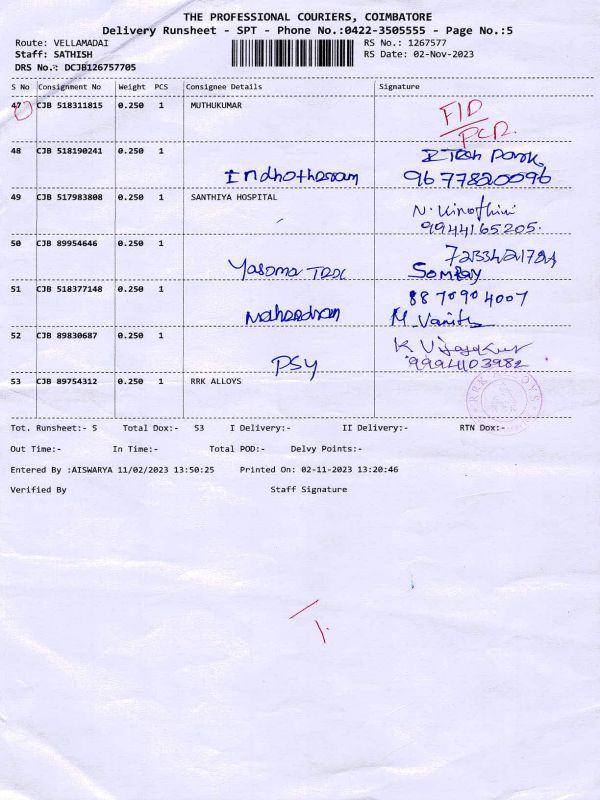 THE PROFESSIONAL COURIERS, COIMBATORE
Delivery Runsheet - SPT - Phone No.:0422-3505555 - Page No.:5
Route: VELLAMADAI
RS No.: 1267577
Staff: SATHISH
RS Date: 02-Nov-2023
DRS No.: DCJB126757705
S No Consignment No Weight PCS Consignee Details Signature
47 CJB 518311815 0.250 1 MUTHUKUMAR
48 CJB 518190241 0.250 1
Indhotharam 9677820096
49 CJB 517983808 0.250 1 SANTHIYA HOSPITAL
9944165205.
50 CJB 89954646 0.250 1
51 CJB 518377148 0.250 1 8870904007
Mahendram M. Vanith
52 CJB 89830687 0.250 1
PSY 9994103982
53 CJB 89754312 0.250 1 RRK ALLOYS
Tot. Runsheet:- 5 Total Dox:- 53 I Delivery:- II Delivery:- RTN Dox:-
Out Time:- In Time:- Total POD:- Delvy Points:-
Entered By :AISWARYA 11/02/2023 13:50:25 Printed On: 02-11-2023 13:20:46
Verified By Staff Signature